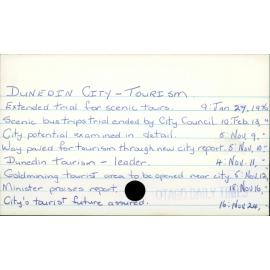 DUNEDIN CITY - TOURISM
Extended trial for scenic tours. 9: Jan 27, 1976
Scenic bus trips trial ended by City Council. 10: Feb. 13, "
City potential examined in detail. 5: Nov. 9, "
Way paved for tourism through new city report. 5: Nov. 10, "
Dunedin tourism - leader. 4: Nov. 11, "
Goldmining tourist area to be opened near city. 5: Nov. 12, "
Minister praises report. 18: Nov. 16, "
OTAGO DAILY TIMES
City's tourist future assured. 16: Nov. 24, "